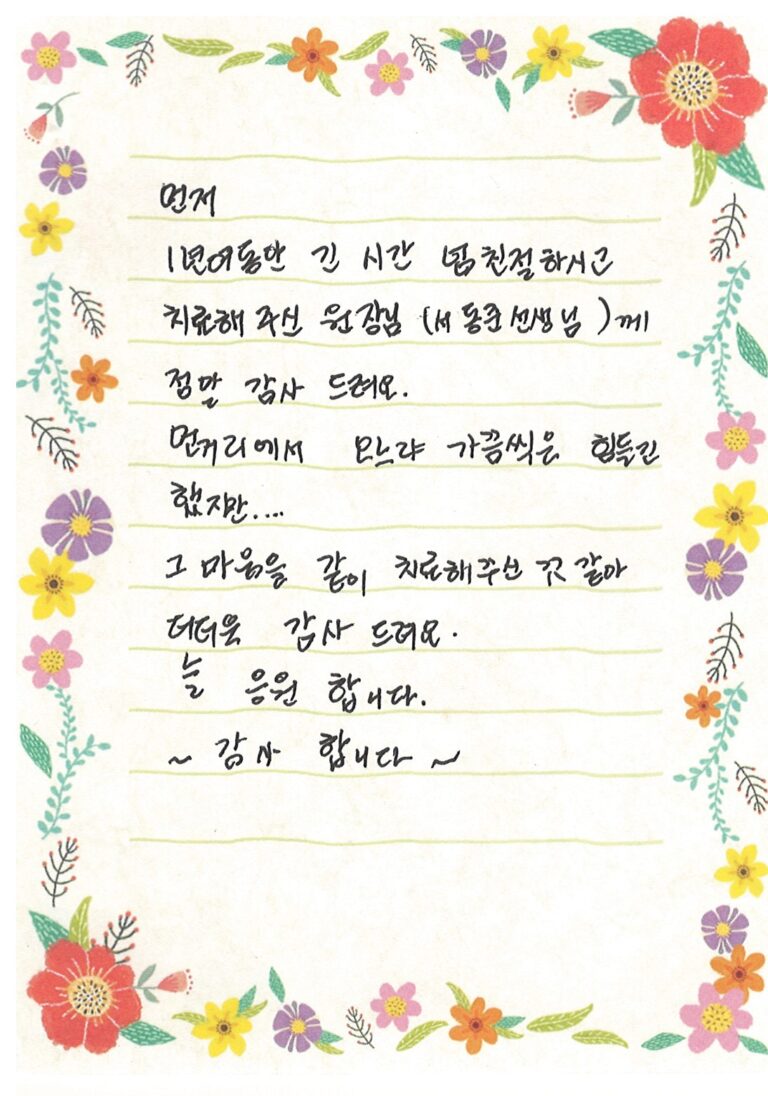 먼저
1년여동안 긴 시간 넘 친절하시고
치료해 주신 원장님 (서동준선생님)께
정말 감사 드려요.
먼거리에서 오느랴 가끔씩은 힘들긴
했지만....
그 마음을 같이 치료해주신 것 같아
더더욱 감사 드려요.
늘 응원 합니다.
~ 감사 합니다 ~